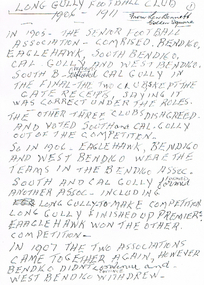 LONG GULLY FOOTBALL CLUB
1906 - 1911
①
From Len Bennett
Golden Square
IN 1905- THE SENIOR FOOTBALL
ASSOCIATION - COMPRISED. BENDIGO,
EAGLEHAWK, SOUTH BENDIGO,
CAL GULLY AND WEST BENDIGO.
SOUTH B- CAL GULLY IN
THE FINAL. THE TWO CLUBS KEPT THE
GATE RECEIPTS, SAYING IT
WAS CORRECT UNDER THE RULES.
THE OTHER THREE CLUBS DISAGREED.
AND VOTED SOUTH AND CAL. GULLY
OUT OF THE COMPETITION.
SO IN 1906. EAGLEHAWK, BENDIGO
AND WEST BENDIGO WERE THE
TEAMS IN THE BENDIGO ASSOC.
SOUTH AND CAL GULLY formed
ANOTHER ASSOC. INCLUDING
LONG GULLY TO MAKE COMPETITION
LONG GULLY FINISHED UP PREMIERS.
EAGLEHAWK WON THE OTHER
COMPETITION.
IN 1907 THE TWO ASSOCIATIONS
CAME TOGETHER AGAIN, HOWEVER
BENDIGO DIDNT and
WEST BENDIGO WITHDREW.